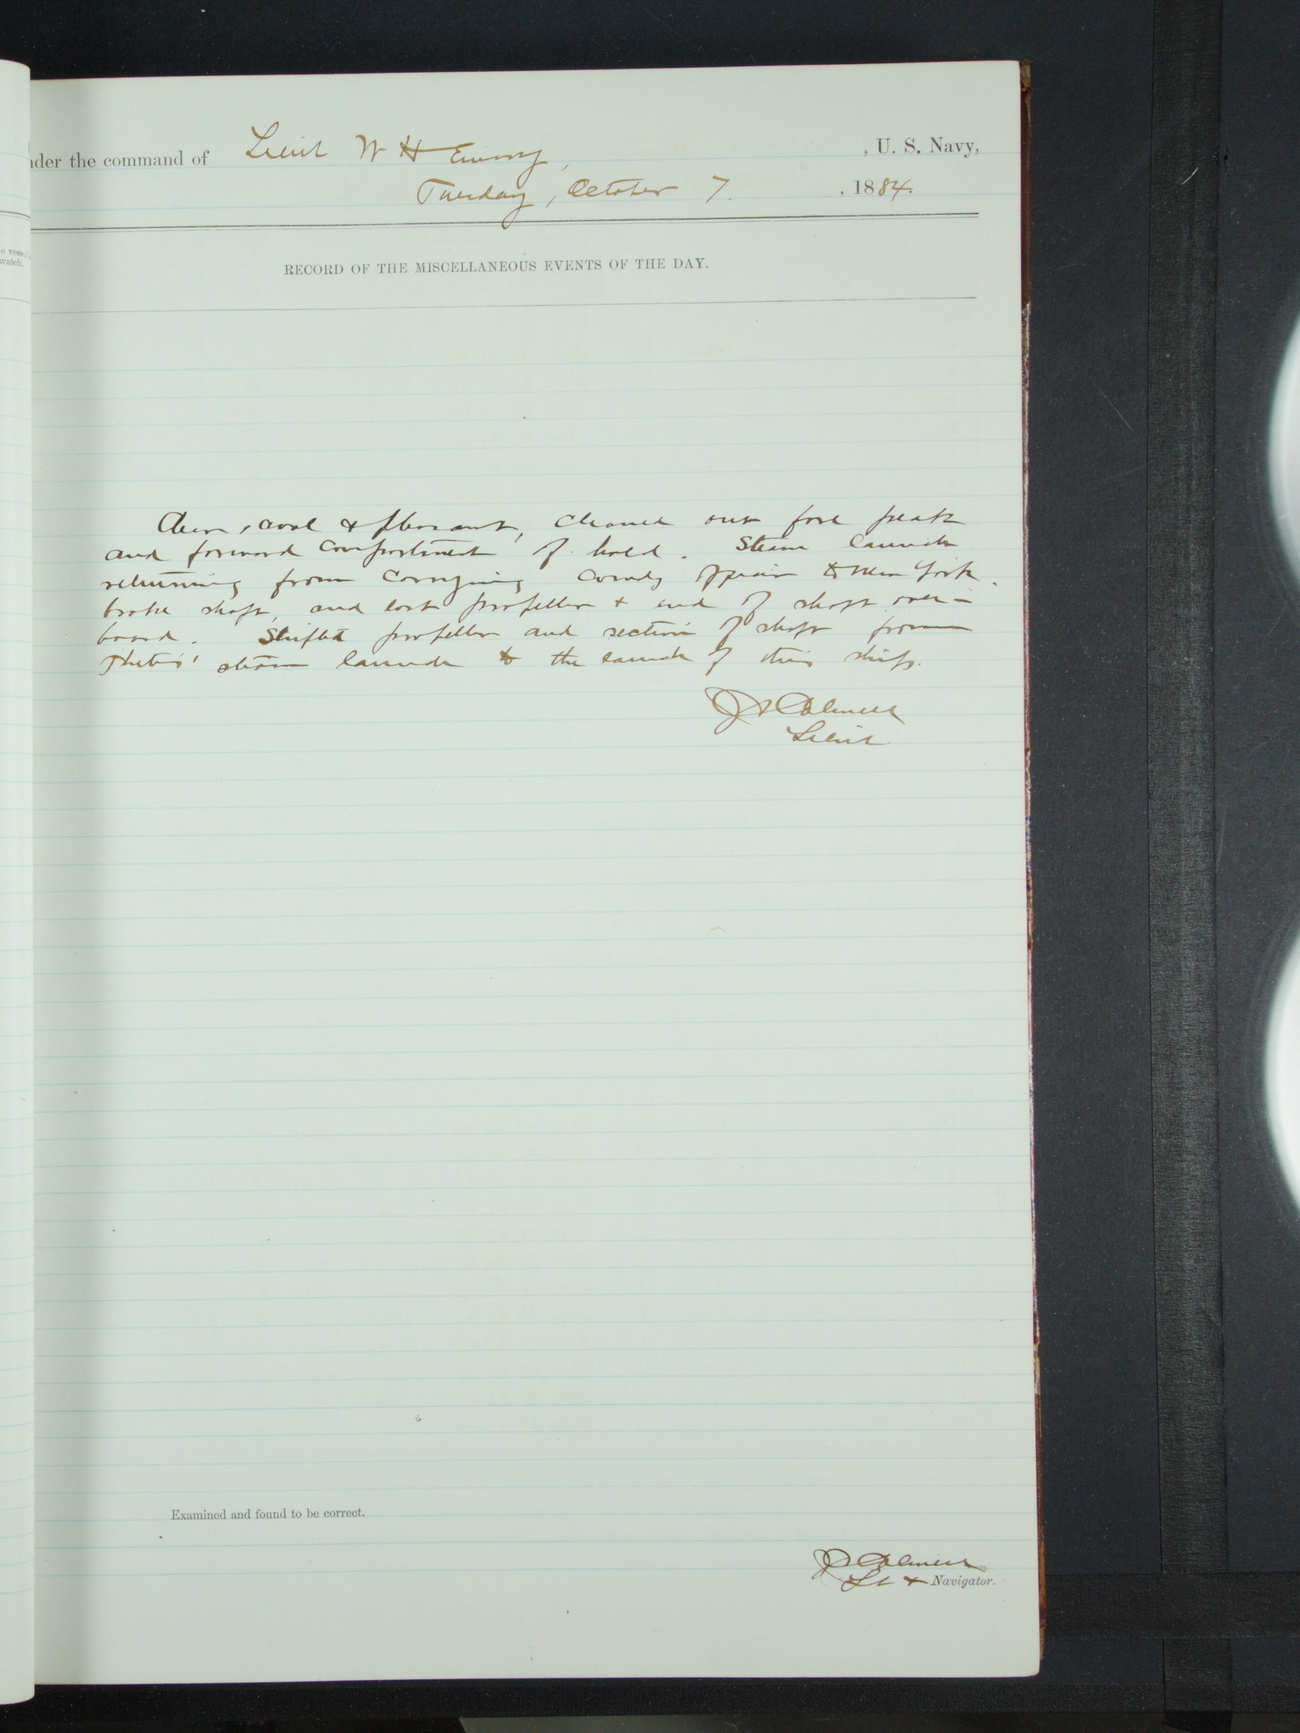 nder the command of Lieut W H Emory, , U. S. Navy,
Tuesday, October 7. , 1884.
e vessel
watch.
RECORD OF THE MISCELLANEOUS EVENTS OF THE DAY.
Clear, cool & pleasant, cleaned out fore peak
and forward compartment of hold. Steam launch
returning from carrying to New York.
broke shaft, and lost propeller & end of shaft over-
board. Shifted propeller and section of shaft from
Thetis' steam launch to the launch of this ship.
Lieut.
Examined and found to be correct.
Lt & Navigator.